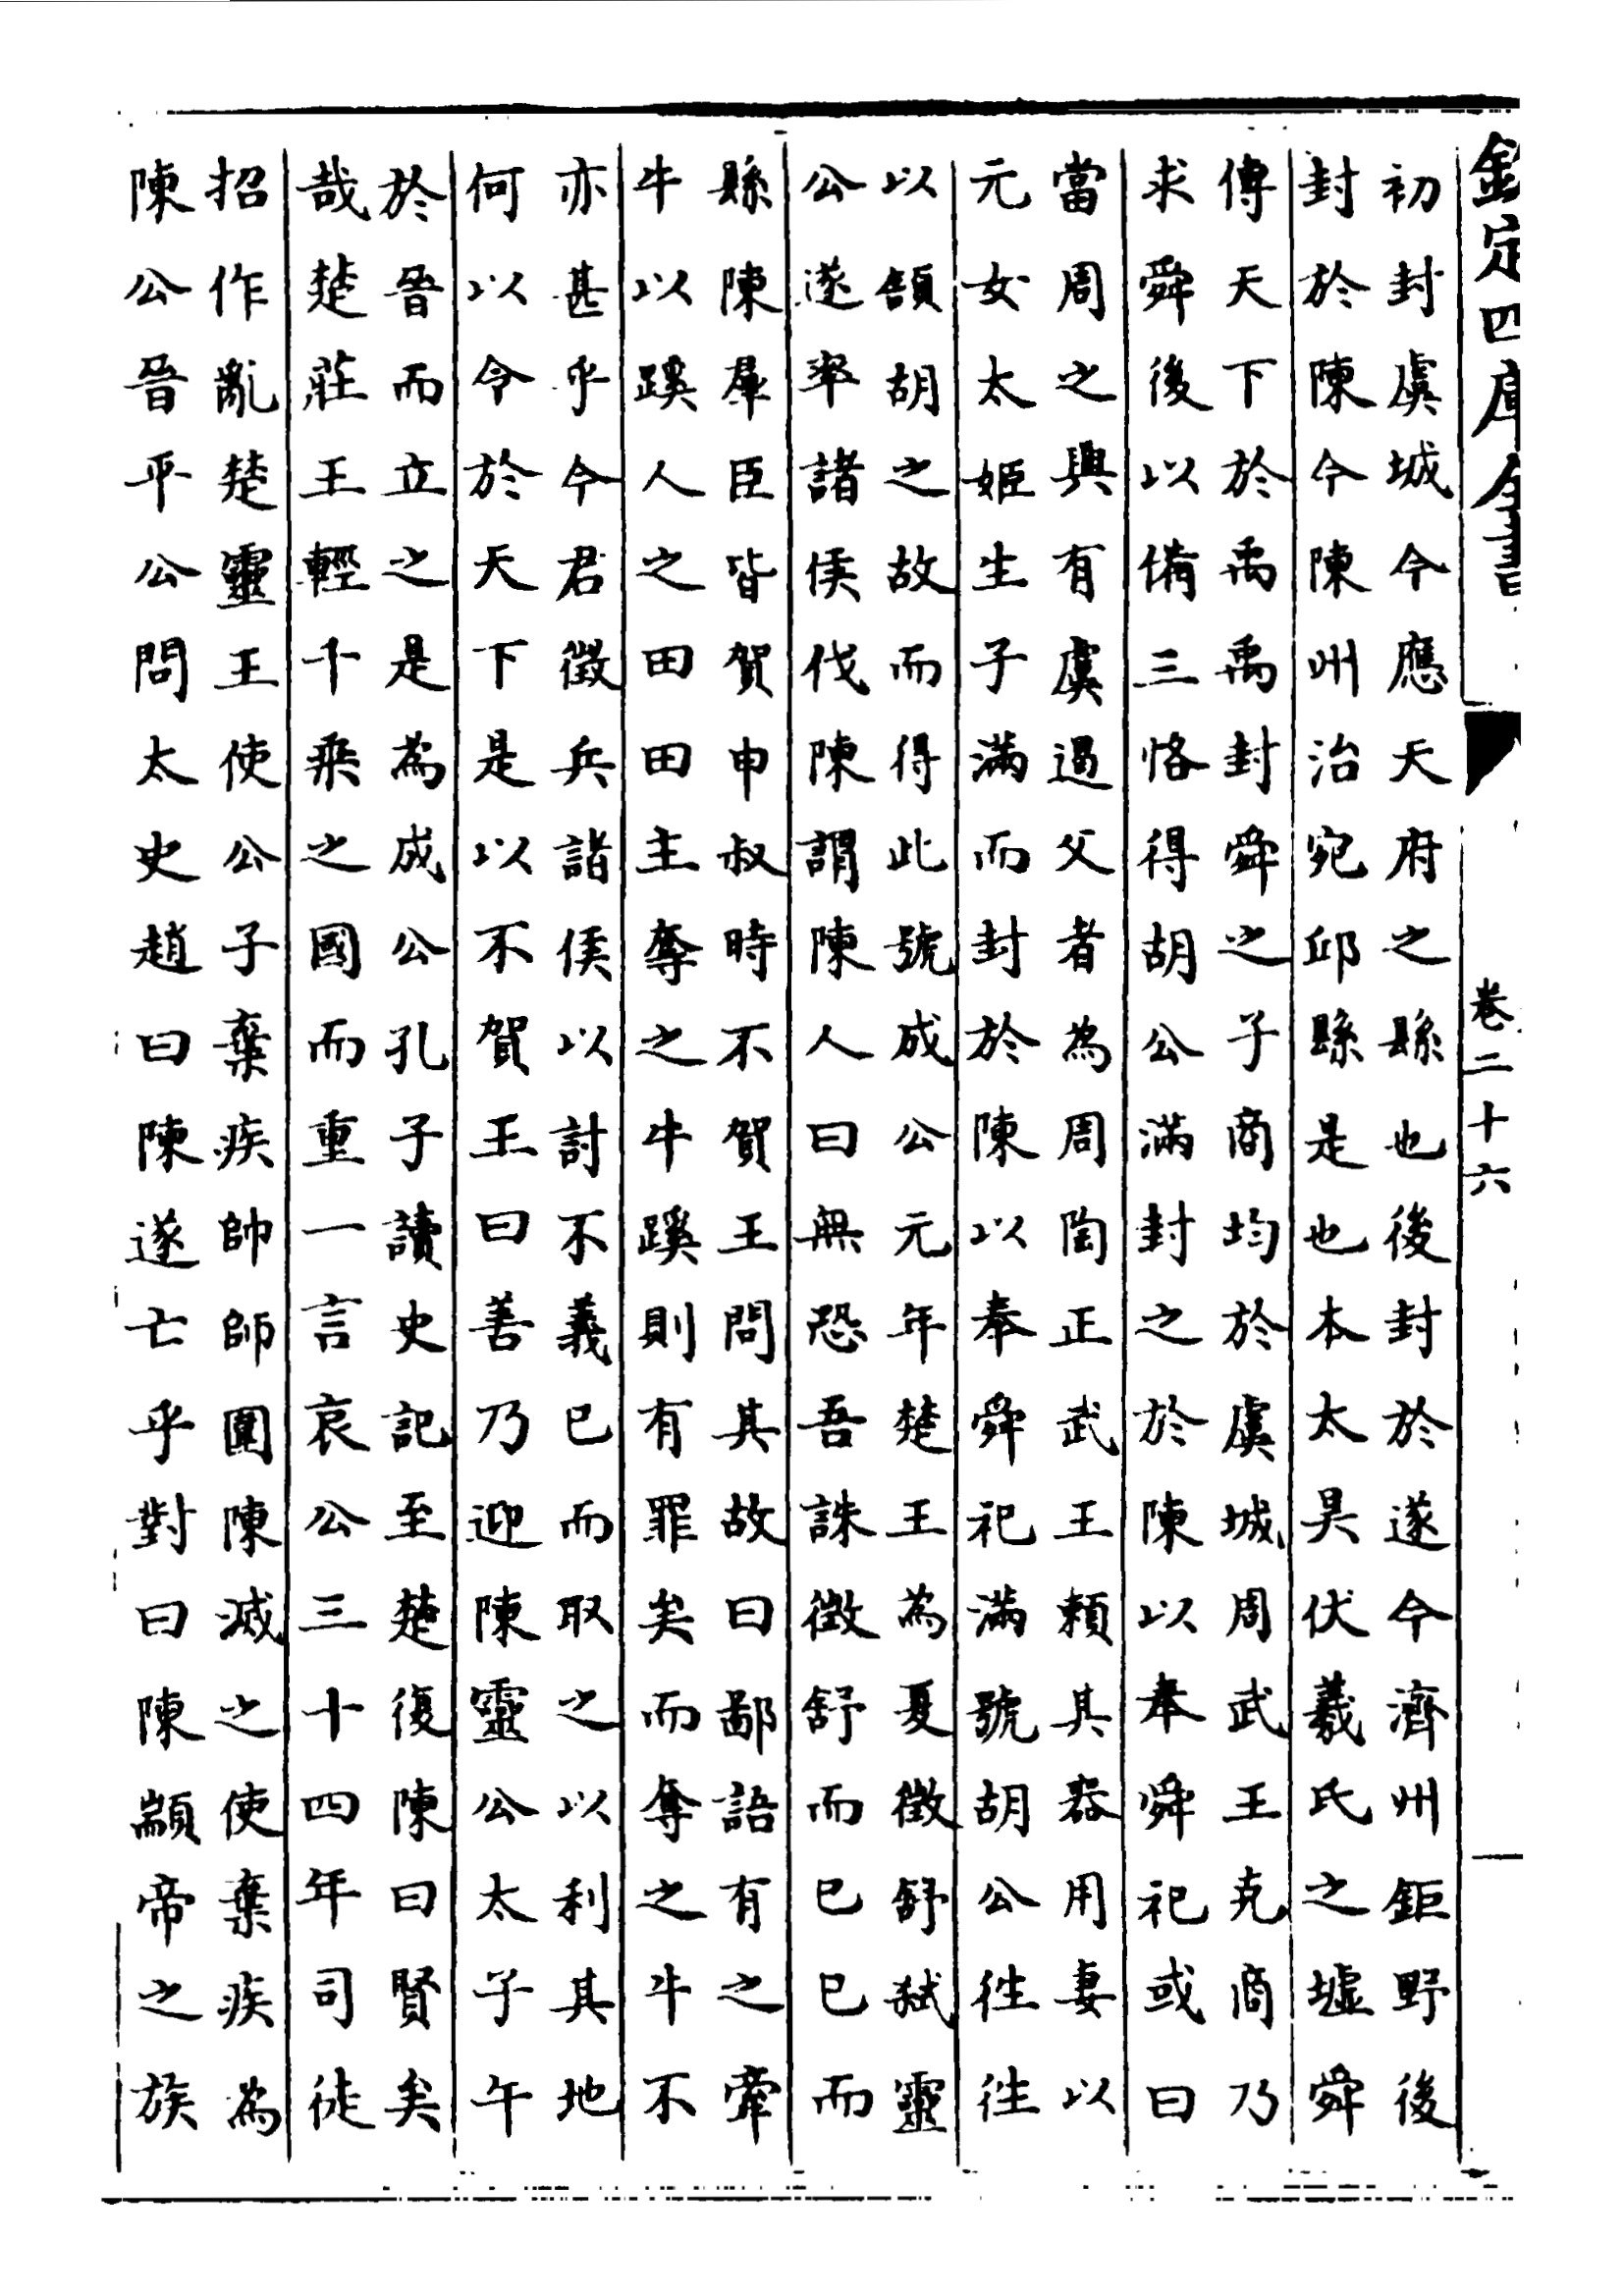 欽定四庫全書
卷二十六
初封虞城今應天府之縣也後封於遂今濟州鉅野後
封於陳今陳州治宛邱縣是也本太昊伏羲氏之墟舜
傳天下於禹禹封舜之子商均於虞城周武王克商乃
求舜後以備三恪得胡公滿封之於陳以奉舜祀或曰
當周之興有虞遏父者為周陶正武王賴其器用妻以
元女太姬生子滿而封於陳以奉舜祀滿號胡公徃徃
以頷胡之故而得此號成公元年楚王為夏徵舒弑靈
公遂率諸侯伐陳謂陳人曰無恐吾誅徵舒而已已而
縣陳羣臣皆賀申叔時不賀王問其故曰鄙語有之牽
牛以蹊人之田田主奪之牛蹊則有罪矣而奪之牛不
亦甚乎今君徵兵諸侯以討不義已而取之以利其地
何以令於天下是以不賀王曰善乃迎陳靈公太子午
於晉而立之是為成公孔子讀史記至楚復陳曰賢矣
哉楚莊王輕千乘之國而重一言哀公三十四年司徒
招作亂楚靈王使公子棄疾帥師圍陳滅之使棄疾為
陳公晉平公問太史趙曰陳遂亡乎對曰陳顓帝之族